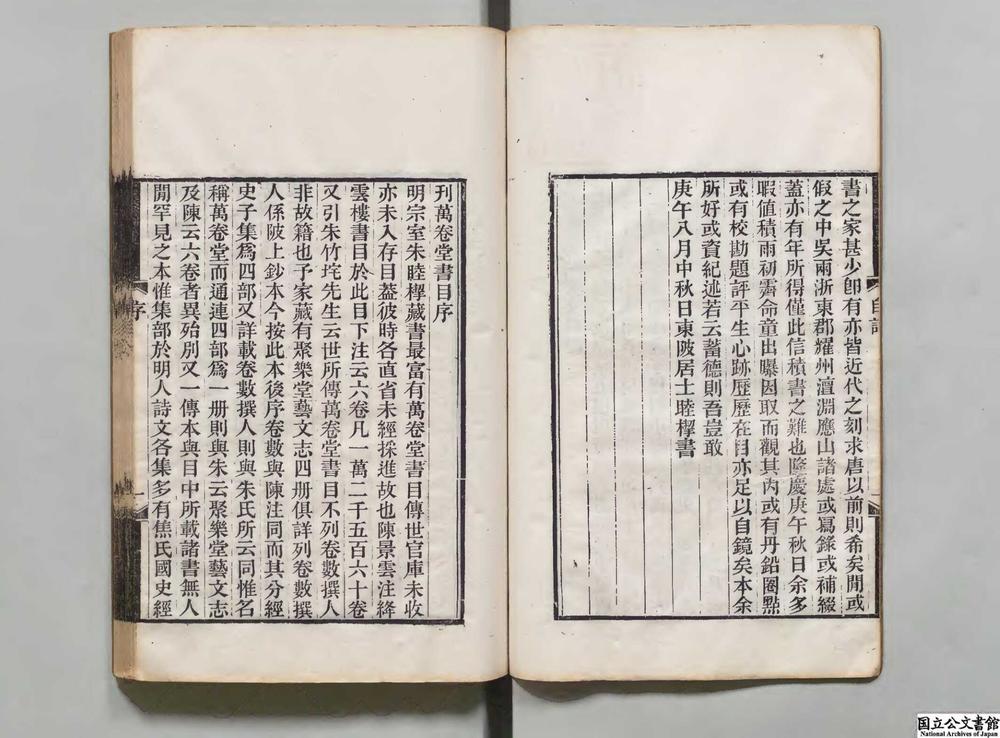 書之家甚少卽有亦皆近代之刻求唐以前則希矣閒或
假之中吳兩浙東郡耀州澶淵應山諸處或寫錄或補綴
蓋亦有年所得僅此信積書之難也隆慶庚午秋日余多
暇値積雨初霽命童出曝因取而觀其內或有丹鉛圈點
或有校勘題評平生心跡歷歷在目亦足以自鏡矣本余
所好或資紀述若云蓄德則吾豈敢
庚午八月中秋日東陂居士睦㮮書
自記
刊萬卷堂書目序
明宗室朱睦㮮藏書最富有萬卷堂書目傳世官庫未收
亦未入存目葢彼時各直省未經採進故也陳景雲注絳
雲樓書目於此目下注云六卷凡一萬二千五百六十卷
又引朱竹垞先生云世所傳萬卷堂書目不列卷數撰人
非故籍也予家藏有聚樂堂藝文志四册俱詳列卷數撰
人係陂上鈔本今按此本後序卷數與陳注同而其分經
史子集爲四部又詳載卷數撰人則與朱氏所云同惟名
稱萬卷堂而通連四部爲一册則與朱云聚樂堂藝文志
及陳云六卷者異殆別又一傳本與目中所載諸書無人
聞罕見之本惟集部於明人詩文各集多有焦氏國史經
序
一
国立公文書館
National Archives of Japan